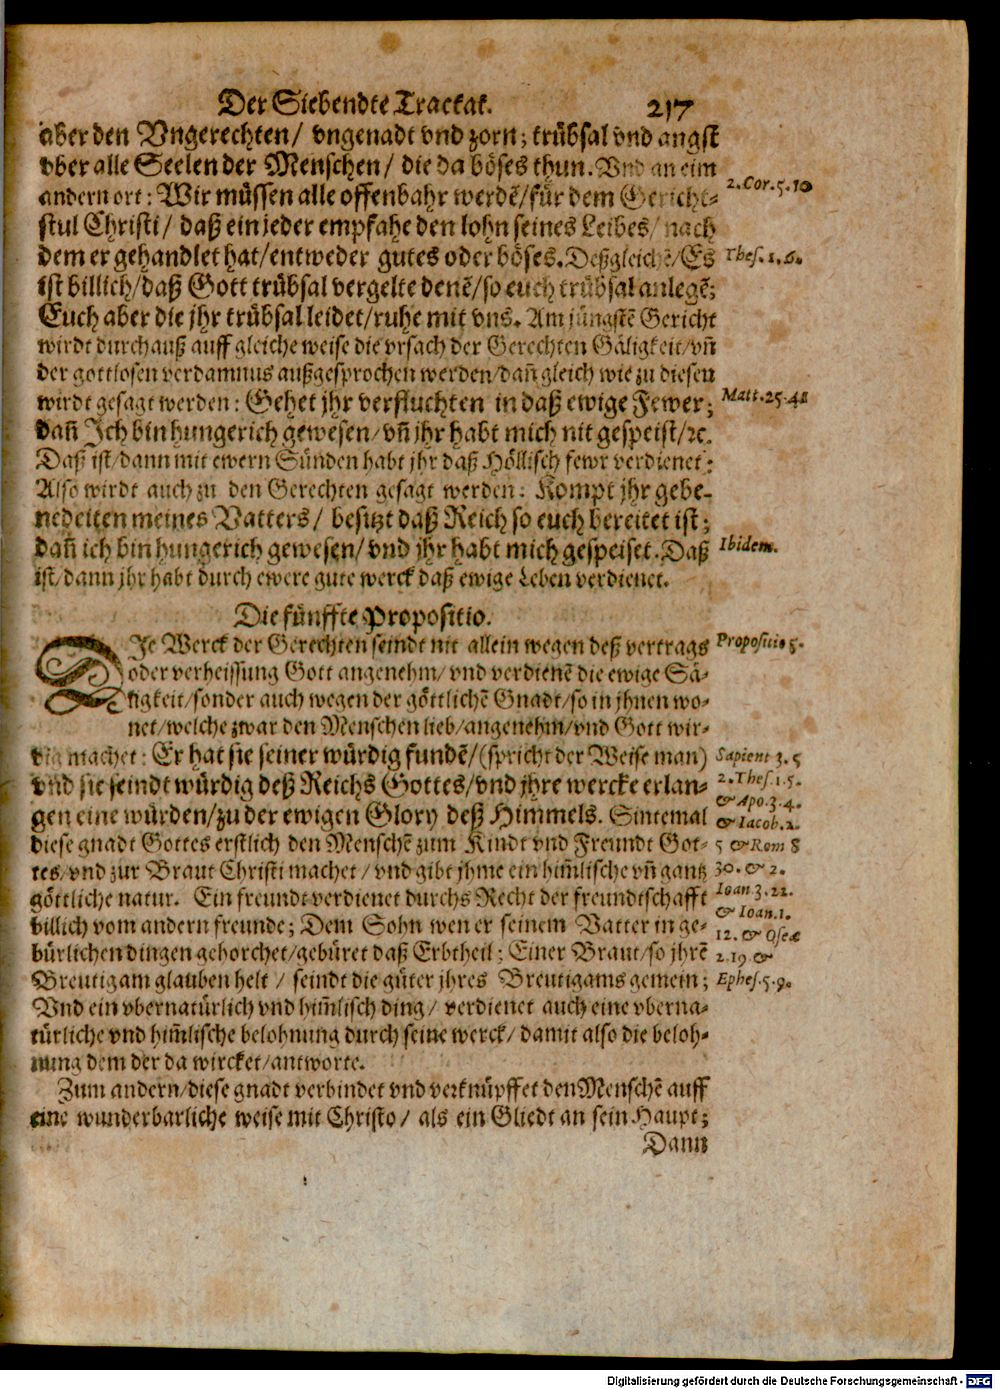 Der Siebendte Tractat. 217
aber den Vngerechten/ vngenadt vnd zorn; trübsal vnd angst
vber alle Seelen der Menschen/ die da böses thun. Vnd an eim
andern ort: Wir müssen alle offenbahr werdẽ/für dem Gericht-
2. Cor. 5. 10
stul Christi/ daß ein jeder empfahe den lohn seines Leibes/ nach
dem er gehandlet hat/entweder gutes oder böses. Deßgleichẽ/Es
Thes. 1. 6.
ist billich/daß Gott trübsal vergelte denẽ/so euch trübsal anlegẽ;
Euch aber die jhr trübsal leidet/ruhe mit vns. Am jüngstẽ Gericht
wirdt durchauß auff gleiche weise die vrsach der Gerechten Säligkeit/vñ
der gottlosen verdamnus außgesprochen werden/dañ gleich wie zu diesen
wirdt gesagt werden: Gehet jhr verfluchten in daß ewige Fewer;
Matt. 25. 41
dañ Ich bin hungerich gewesen/vñ jhr habt mich nit gespeist/ꝛc.
Daß ist/dann mit ewern Sünden habt jhr daß Höllisch fewr verdienet:
Also wirdt auch zu den Gerechten gesagt werden: Kompt jhr gebe-
nedeiten meines Vatters/ besitzt daß Reich so euch bereitet ist;
dañ ich bin hungerich gewesen/vnd jhr habt mich gespeiset. Daß
Ibidem.
ist/dann jhr habt durch ewere gute werck daß ewige Leben verdienet.
Die fünffte Propositio.
DJe Werck der Gerechten seindt nit allein wegen deß vertrags
Propositio 5.
oder verheissung Gott angenehm/vnd verdienẽ die ewige Sä-
ligkeit/sonder auch wegen der göttlichẽ Gnadt/so in jhnen wo-
net/welche zwar den Menschen lieb/angenehm/vnd Gott wir-
dig machet: Er hat sie seiner würdig fundẽ/(spricht der Weise man)
Sapient 3. 5
vnd sie seindt würdig deß Reichs Gottes/vnd jhre wercke erlan-
2. Thes. 1. 5.
gen eine würden/zu der ewigen Glory deß Himmels. Sintemal
& Apo. 3. 4.
& Iacob. 2.
diese gnadt Gottes erstlich den Menschẽ zum Kindt vnd Freundt Got-
5 & Rom 8
tes/vnd zur Braut Christi machet/vnd gibt jhme ein him̃lische vñ gantz
30. & 2.
göttliche natur. Ein freundt verdienet durchs Recht der freundtschafft
Ioan 3. 22.
billich vom andern freunde; Dem Sohn wen er seinem Vatter in ge-
& Ioan. 1.
12. & Oseæ
bürlichen dingen gehorchet/gebüret daß Erbtheil; Einer Braut/so jhrẽ
2. 19 &
Breutigam glauben helt/ seindt die güter jhres Breutigams gemein;
Ephes. 5. 9.
Vnd ein vbernatürlich vnd him̃lisch ding/ verdienet auch eine vberna-
türliche vnd him̃lische belohnung durch seine werck/ damit also die beloh-
nung dem der da wircket/antworte.
Zum andern/diese gnadt verbindet vnd verknüpffet den Menschẽ auff
eine wunderbarliche weise mit Christo/ als ein Gliedt an sein Haupt;
Dann
Digitalisierung gefördert durch die Deutsche Forschungsgemeinschaft - DFG